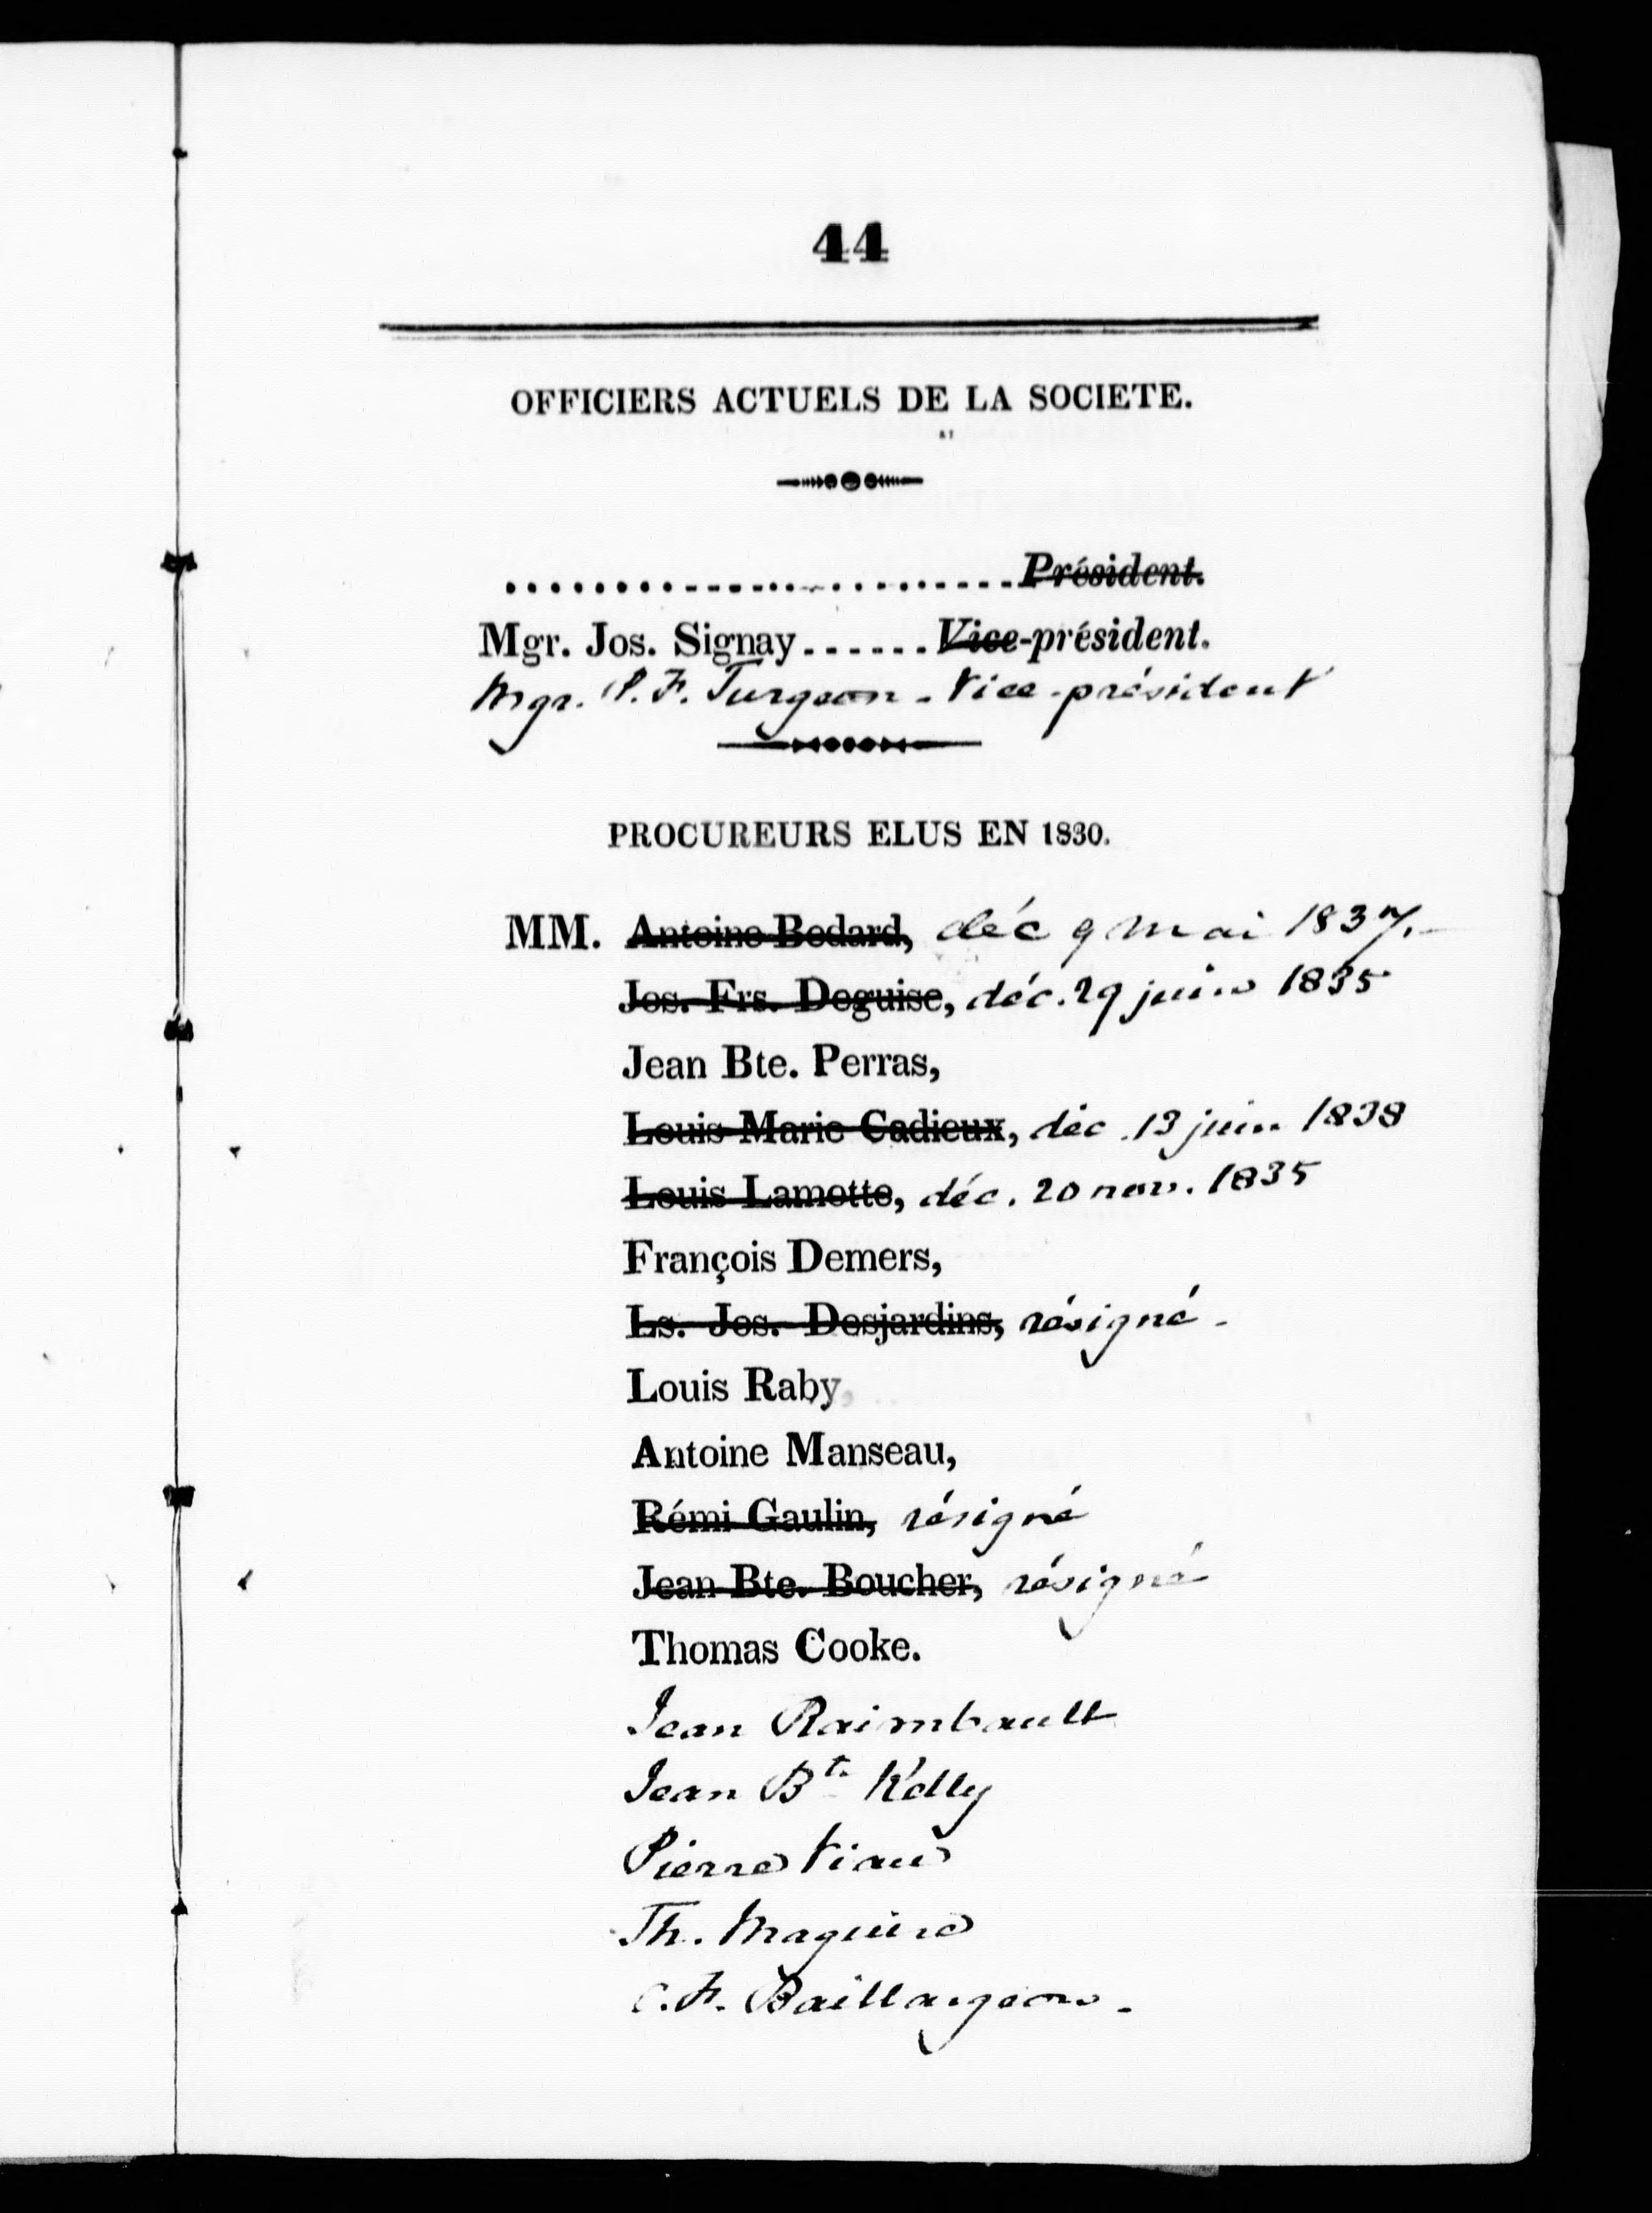 44
OFFICIERS ACTUELS DE LA SOCIETE.
..............................Président.
Mgr. Jos. Signay......Vice-président.
Mgr. P. F. Turgeon - Vice-président
PROCUREURS ELUS EN 1830.
MM. Antoine Bedard, déc 9 mai 1837.
Jos. Frs. Deguise, déc. 29 juin 1835
Jean Bte. Perras,
Louis Marie Cadieux, déc. 13 juin 1838
Louis Lamotte, déc. 20 nov. 1835
François Demers,
Ls. Jos. Desjardins, résigné -
Louis Raby,
Antoine Manseau,
Rémi Gaulin, résigné
Jean Bte. Boucher, résigné
Thomas Cooke.
Jean Raimbault
Jean Bte Kelly
Pierre Viau
Th. Maguire
C. F. Baillargeon -